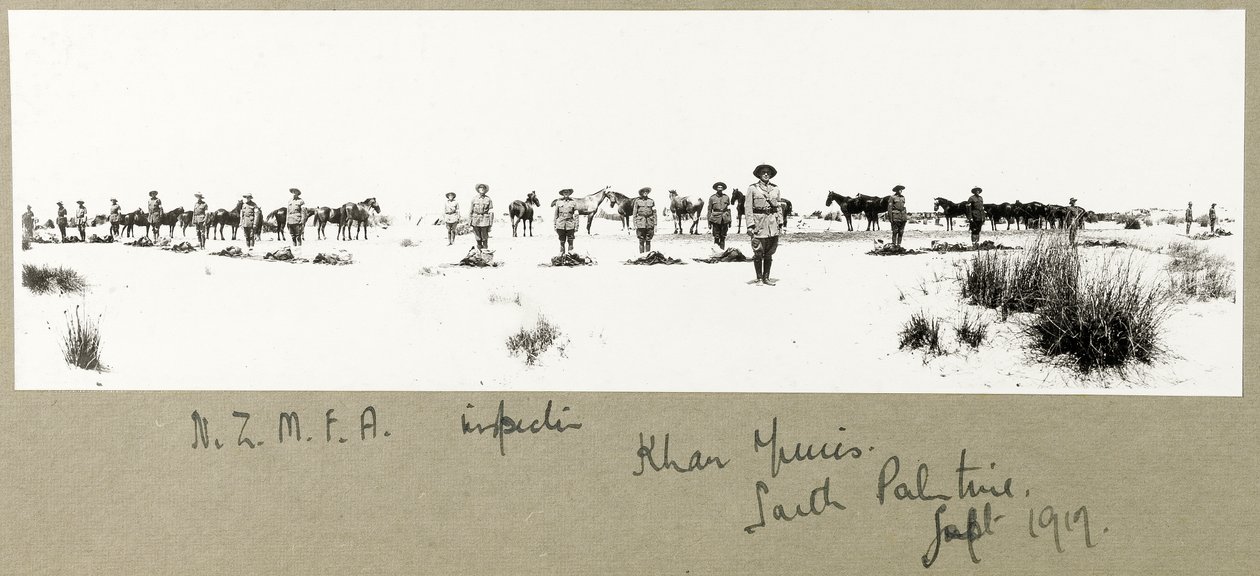 N. Z. M. F. A. inspection
Khan Yunis.
South Palestine.
Sept 1917.